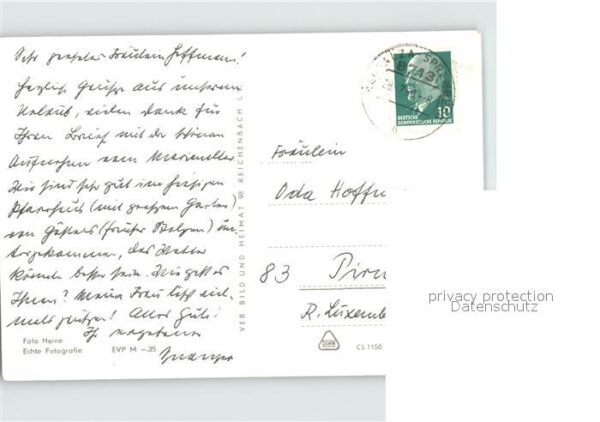 Sehr geehrtes Fräulein Hoffmann!
herzliche Grüße aus unserem
Urlaub, vielen Dank für
Ihren Brief mit der schönen
Aufnahme vom
Wir sind sehr gut im hiesigen
Pfarrhaus (mit großem Garten)
von (früher
das Wetter
könnte besser sein. Wie geht es
Ihnen? Meine Frau läßt viel-
mals grüßen! Alles Gute!
Ihr ergebener
Foto Heine
Echte Fotografie EVP M -.25
VEB BILD UND HEIMAT 98 REICHENBACH
DEUTSCHE
DEMOKRATISCHE REPUBLIK 10
Fräulein
Oda Hoffm
83 Pirn
R. Luxemb
CS 1150
privacy protection
Datenschutz